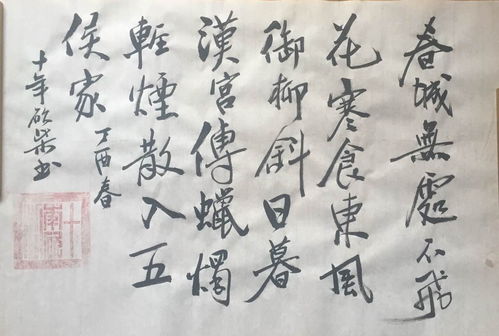 春城無處不飛
花寒食東風
御柳斜日暮
漢宮傳蠟燭
輕煙散入五
侯家
丁酉春
十年砍柴书